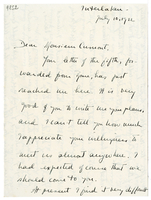 Interlaken
July 10, 1922
Dear Monsieur Cumont,
Your letter of the fifth, for-
warded from Paris, has just
reached me here. It is very
good of you to write me your plans,
and I can't tell you how much
I appreciate your willingness to
meet us almost anywhere. I
had expected of course that we
should come to you.
At present I find it very difficult